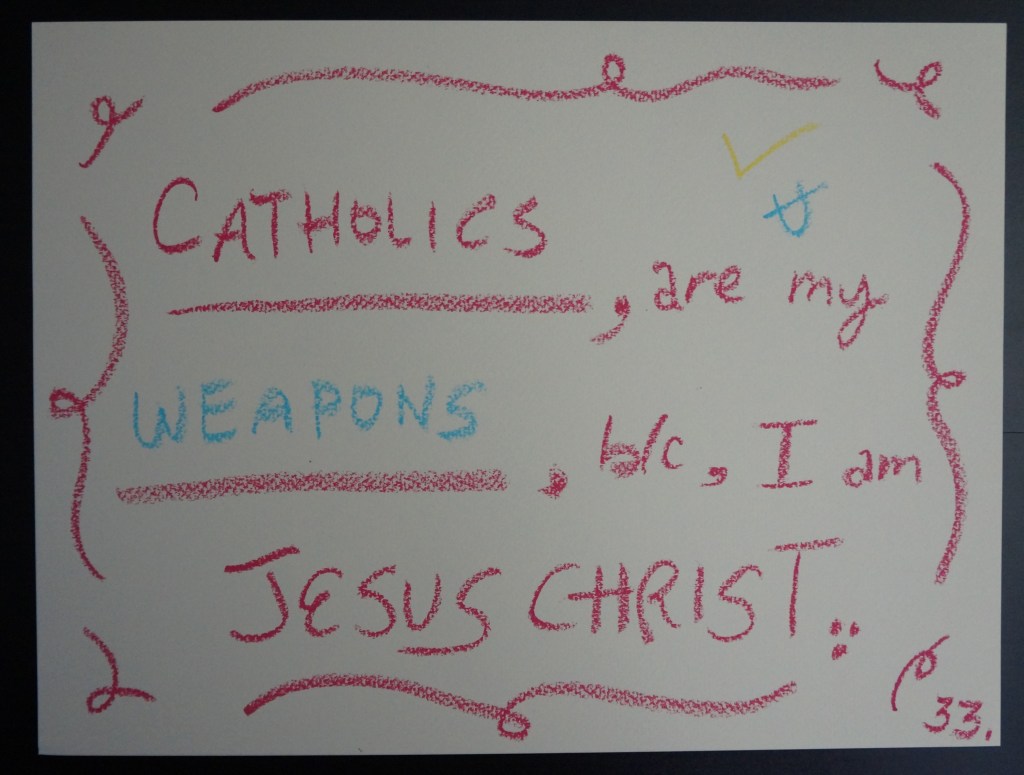 CATHOLICS, are my
WEAPONS, b/c, I am
JESUS CHRIST
33.